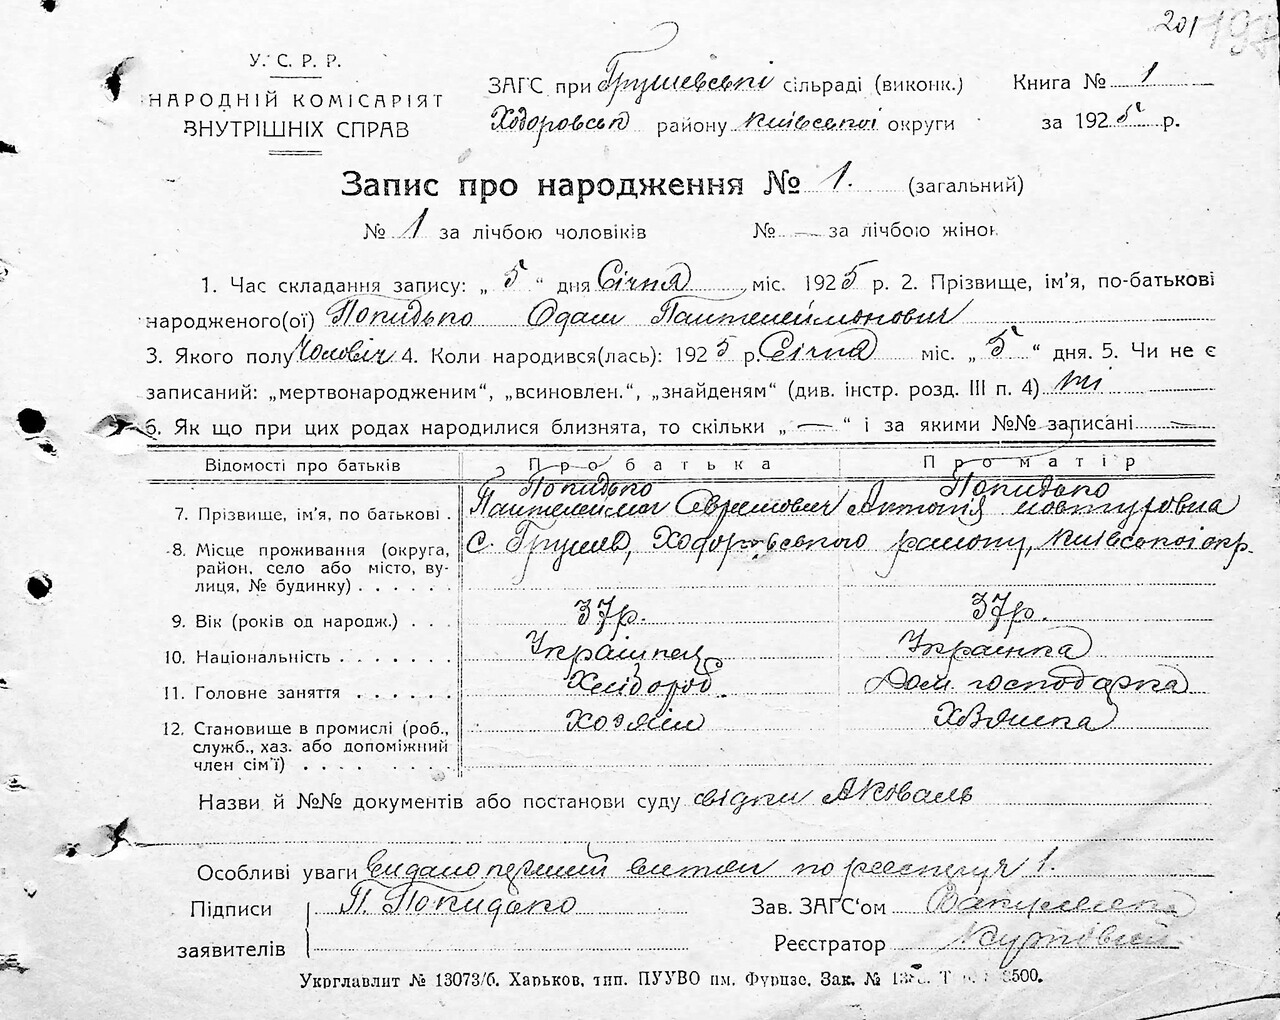 201
У. С. Р. Р.
НАРОДНІЙ КОМІСАРІЯТ
ВНУТРІШНІХ СПРАВ
ЗАГС при Грушевські сільраді (виконк.)
Ходоровськ району Київської округи
Книга № 1
за 1925 р.
Запис про народження № 1. (загальний)
№ 1 за лічбою чоловіків № — за лічбою жінок
1. Час складання запису: „ 5 “ дня Січня міс. 1925 р. 2. Прізвище, ім'я, по-батькові
народженого(ої) Покидько Одам Пантелеймонович
3. Якого полу Чоловіч 4. Коли народився(лась): 1925 р. Січня міс. „ 5 “ дня. 5. Чи не є
записаний: „мертвонародженим“, „всиновлен.“, „знайденям“ (див. інстр. розд. III п. 4) ні
6. Як що при цих родах народилися близнята, то скільки „ — “ і за якими №№ записані —
Відомості про батьків Про батька Про матір
7. Прізвище, ім'я, по батькові . Покидько Пантелеймон Покидько
8. Місце проживання (округа, район, село або місто, вулиця, № будинку) . . . . . с. Грушев, Ходорівського району, Київської окр.
9. Вік (років од народж.) . . . 37р. 37р.
10. Національність . . . . . . . Українец Українка
11. Головне заняття . . . . . . Хлібороб. Дом. господарка
12. Становище в промислі (роб., служб., хаз. або допоміжний член сім'ї) . . . . . . . Хозяін
Назви й №№ документів або постанови суду свідки А Коваль
Особливі уваги Видано по реестру 1.
Підписи заявителів П. Покидько
Зав. ЗАГС'ом
Реєстратор
Укрглавлит № 13073/б. Харьков, тип. ПУУВО им. Фрунзе. Зак. №